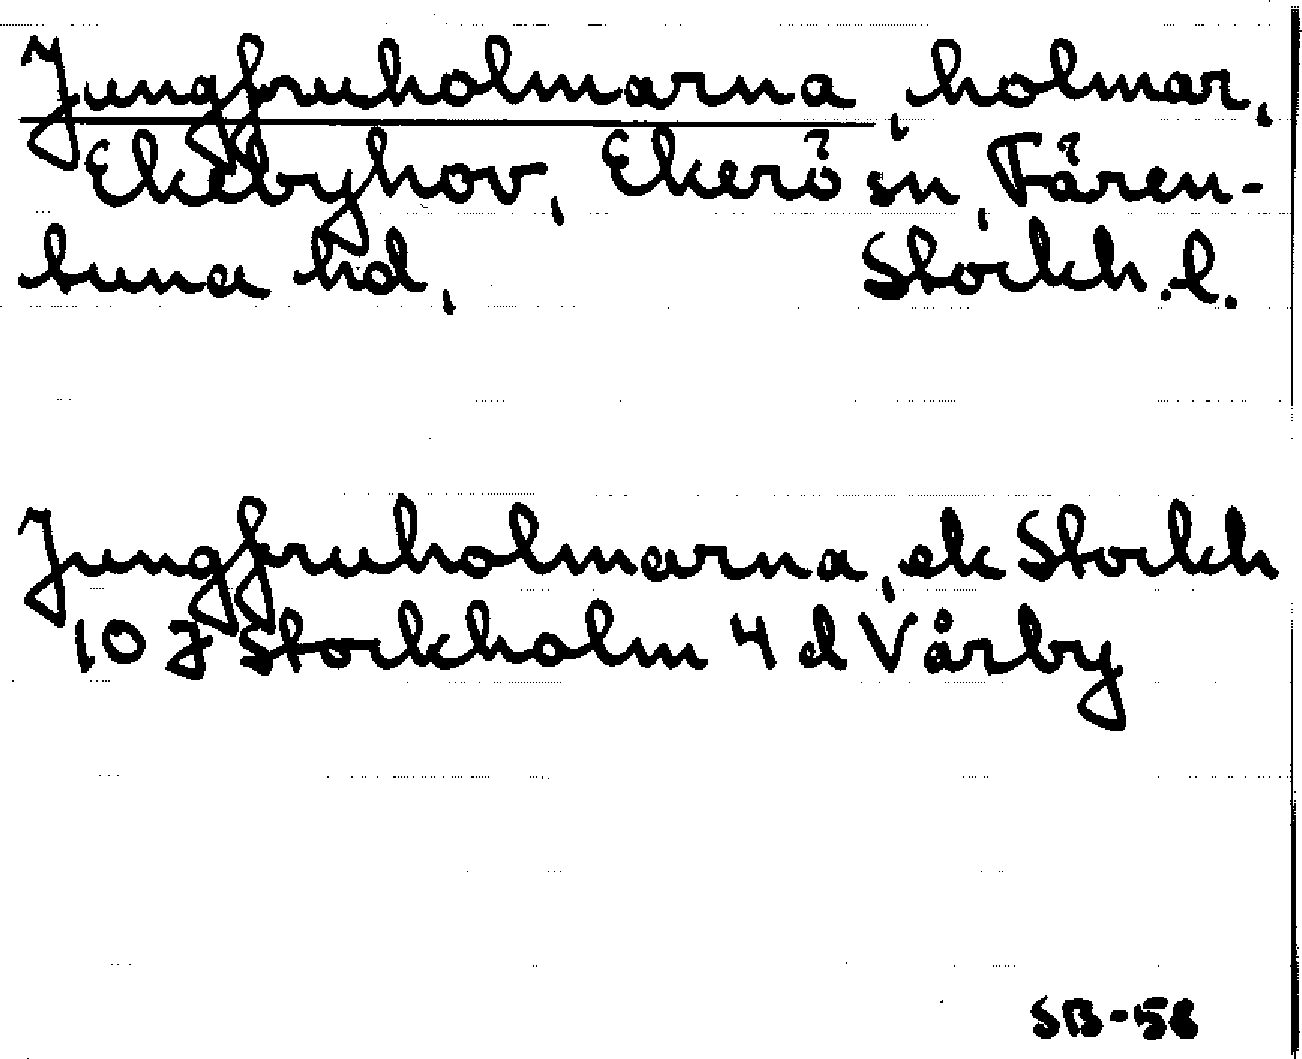 Jungfruholmarna, holmar,
Ekebyhov, Ekerö sn, Fären-
tuna hd, Stockh. l.
Jungfruholmarna, ek Stockh
10 J Stockholm 4 d Vårby
SB-58